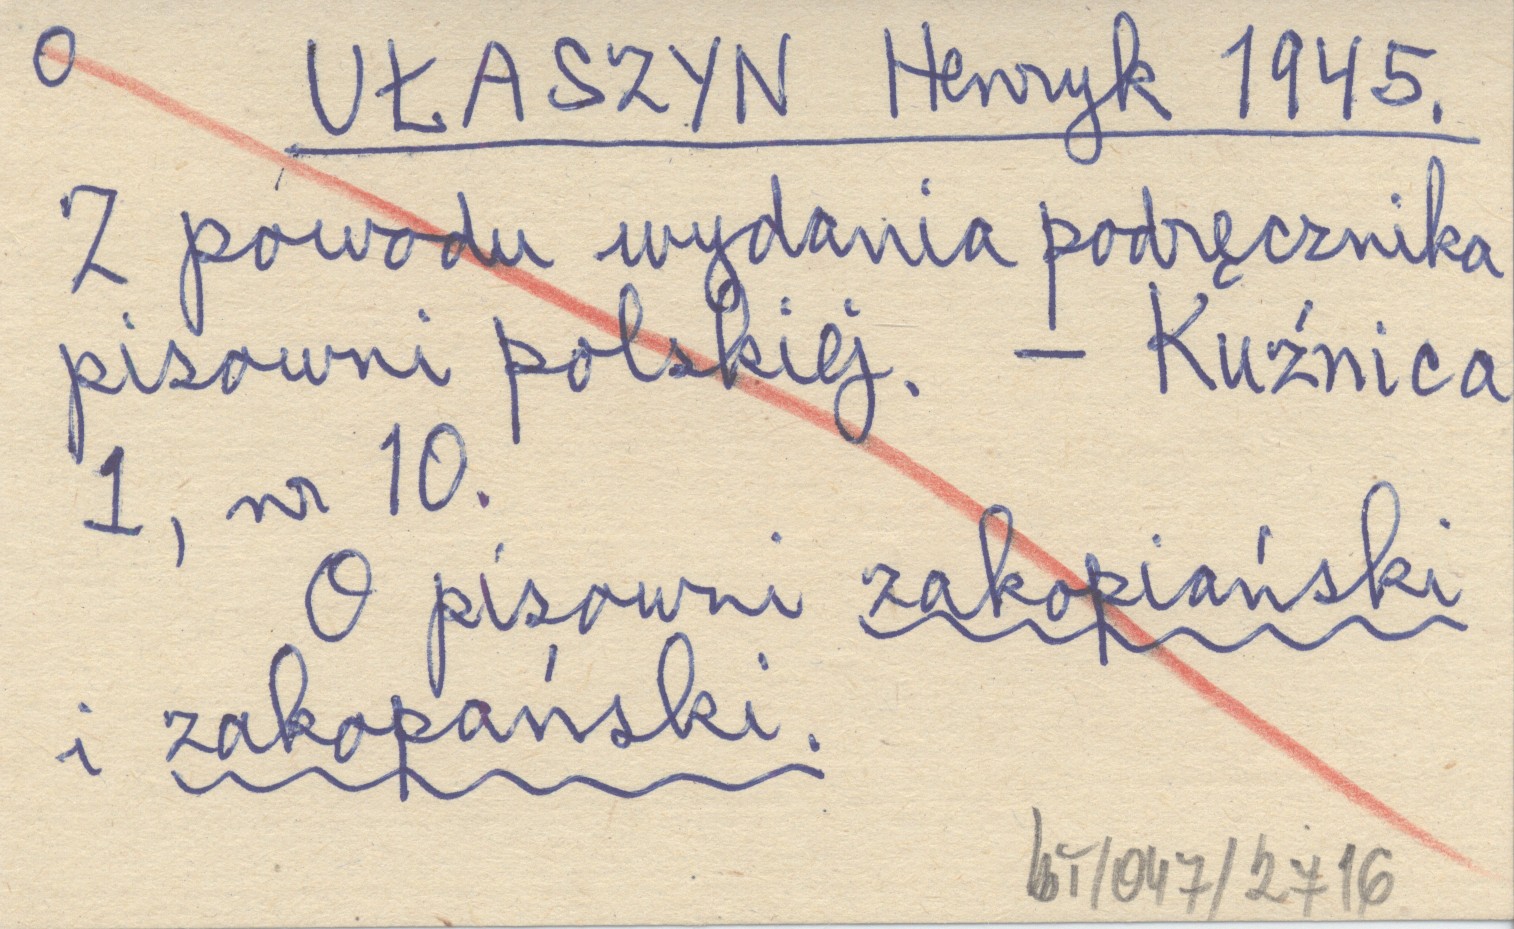 O UŁASZYN Henryk 1945.
Z powodu wydania podręcznika
pisowni polskiej. — Kuźnica
1, nr 10.
O pisowni zakopiański
i zakopański.
bi/047/2716